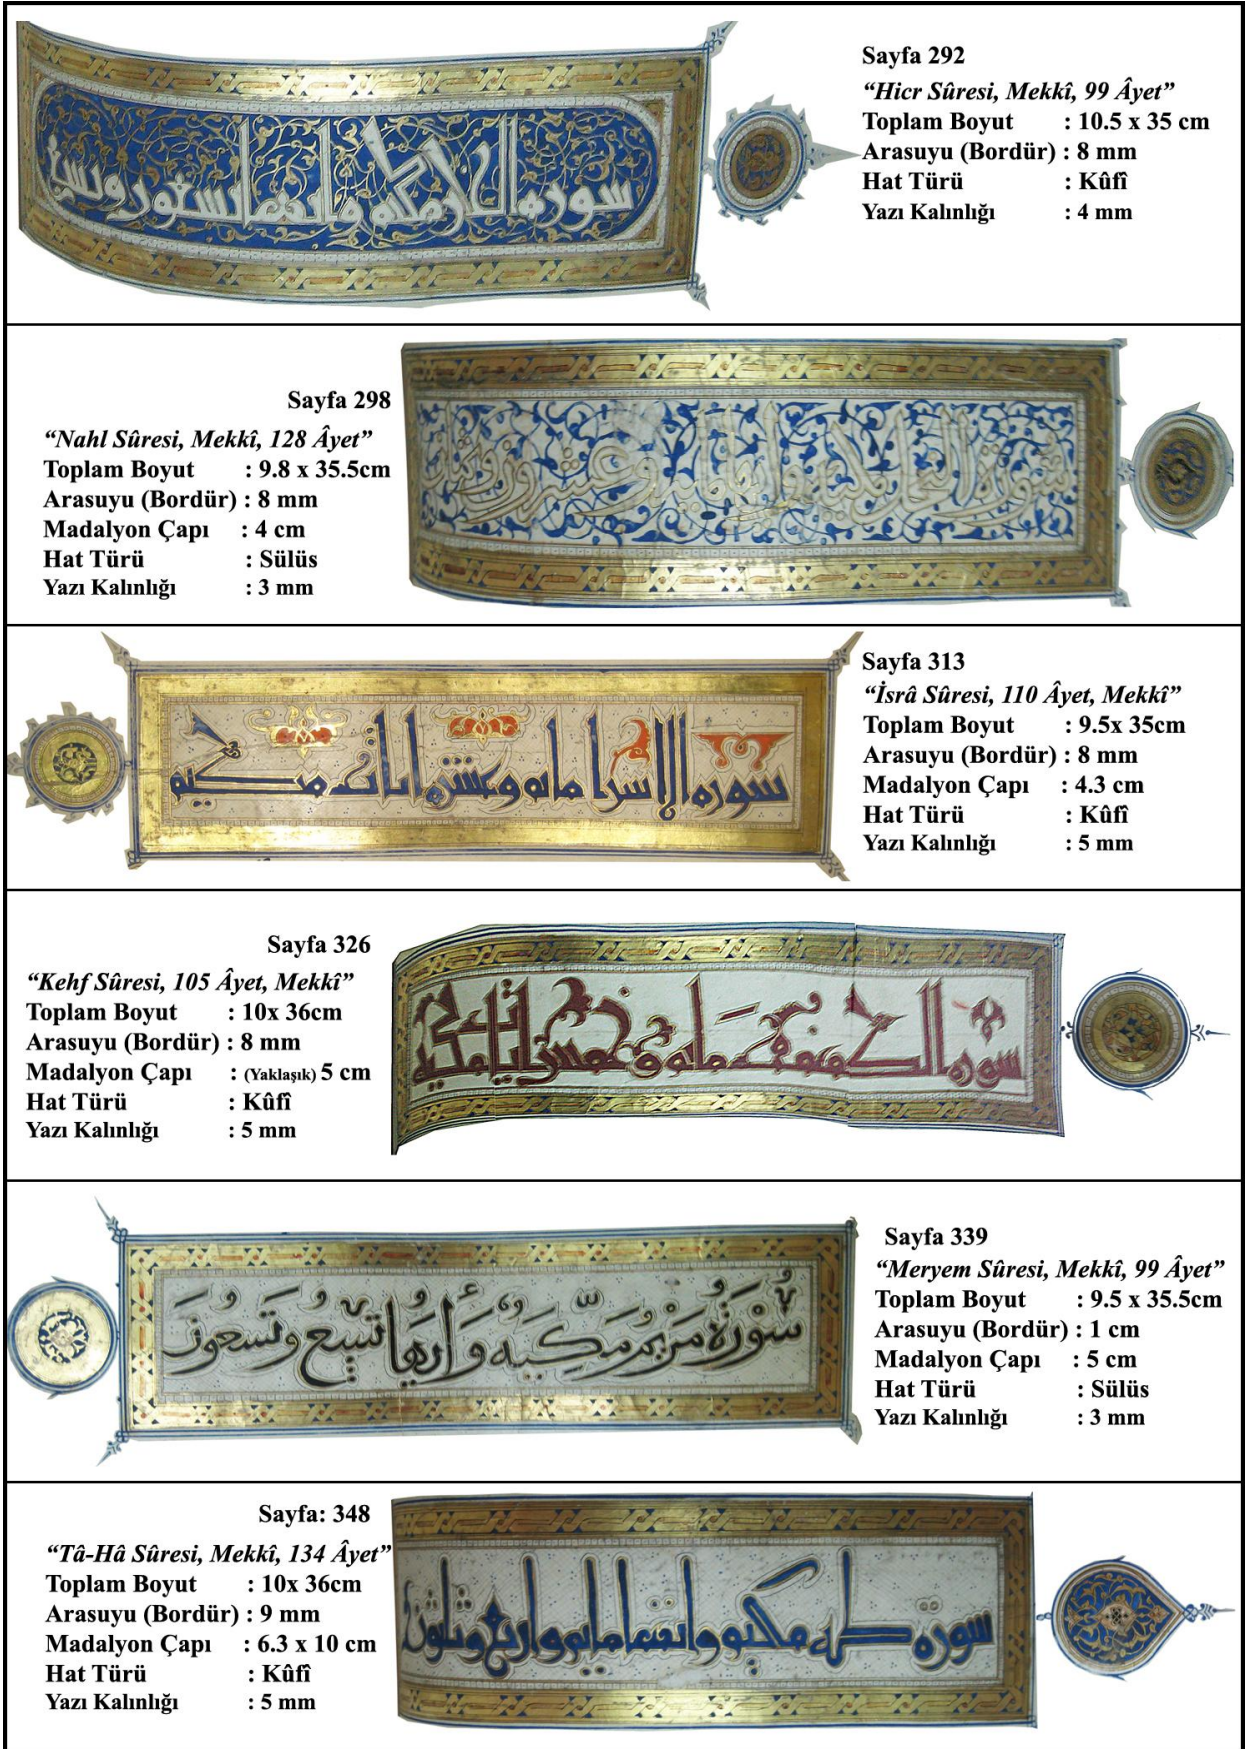 Sayfa 292
“Hicr Sûresi, Mekkî, 99 Âyet”
Toplam Boyut : 10.5 x 35 cm
Arasuyu (Bordür) : 8 mm
Hat Türü : Kûfî
Yazı Kalınlığı : 4 mm
Sayfa 298
“Nahl Sûresi, Mekkî, 128 Âyet”
Toplam Boyut : 9.8 x 35.5cm
Arasuyu (Bordür) : 8 mm
Madalyon Çapı : 4 cm
Hat Türü : Sülüs
Yazı Kalınlığı : 3 mm
سورة الاسرا مايه وعشر ايات مكية
Sayfa 313
“İsrâ Sûresi, 110 Âyet, Mekkî”
Toplam Boyut : 9.5x 35cm
Arasuyu (Bordür) : 8 mm
Madalyon Çapı : 4.3 cm
Hat Türü : Kûfî
Yazı Kalınlığı : 5 mm
Sayfa 326
“Kehf Sûresi, 105 Âyet, Mekkî”
Toplam Boyut : 10x 36cm
Arasuyu (Bordür) : 8 mm
Madalyon Çapı : (Yaklaşık) 5 cm
Hat Türü : Kûfî
Yazı Kalınlığı : 5 mm
سوره الكهف مايه وخمس ايات مكيه
سُورَةُ مَرْيَمُ مَكِّيَّة وَأيُهَا تِسْعٌ وَتسعُونَ
Sayfa 339
“Meryem Sûresi, Mekkî, 99 Âyet”
Toplam Boyut : 9.5 x 35.5cm
Arasuyu (Bordür) : 1 cm
Madalyon Çapı : 5 cm
Hat Türü : Sülüs
Yazı Kalınlığı : 3 mm
Sayfa: 348
“Tâ-Hâ Sûresi, Mekkî, 134 Âyet”
Toplam Boyut : 10x 36cm
Arasuyu (Bordür) : 9 mm
Madalyon Çapı : 6.3 x 10 cm
Hat Türü : Kûfî
Yazı Kalınlığı : 5 mm
سورة طه مكية وايتها مايه واربع وثلثون